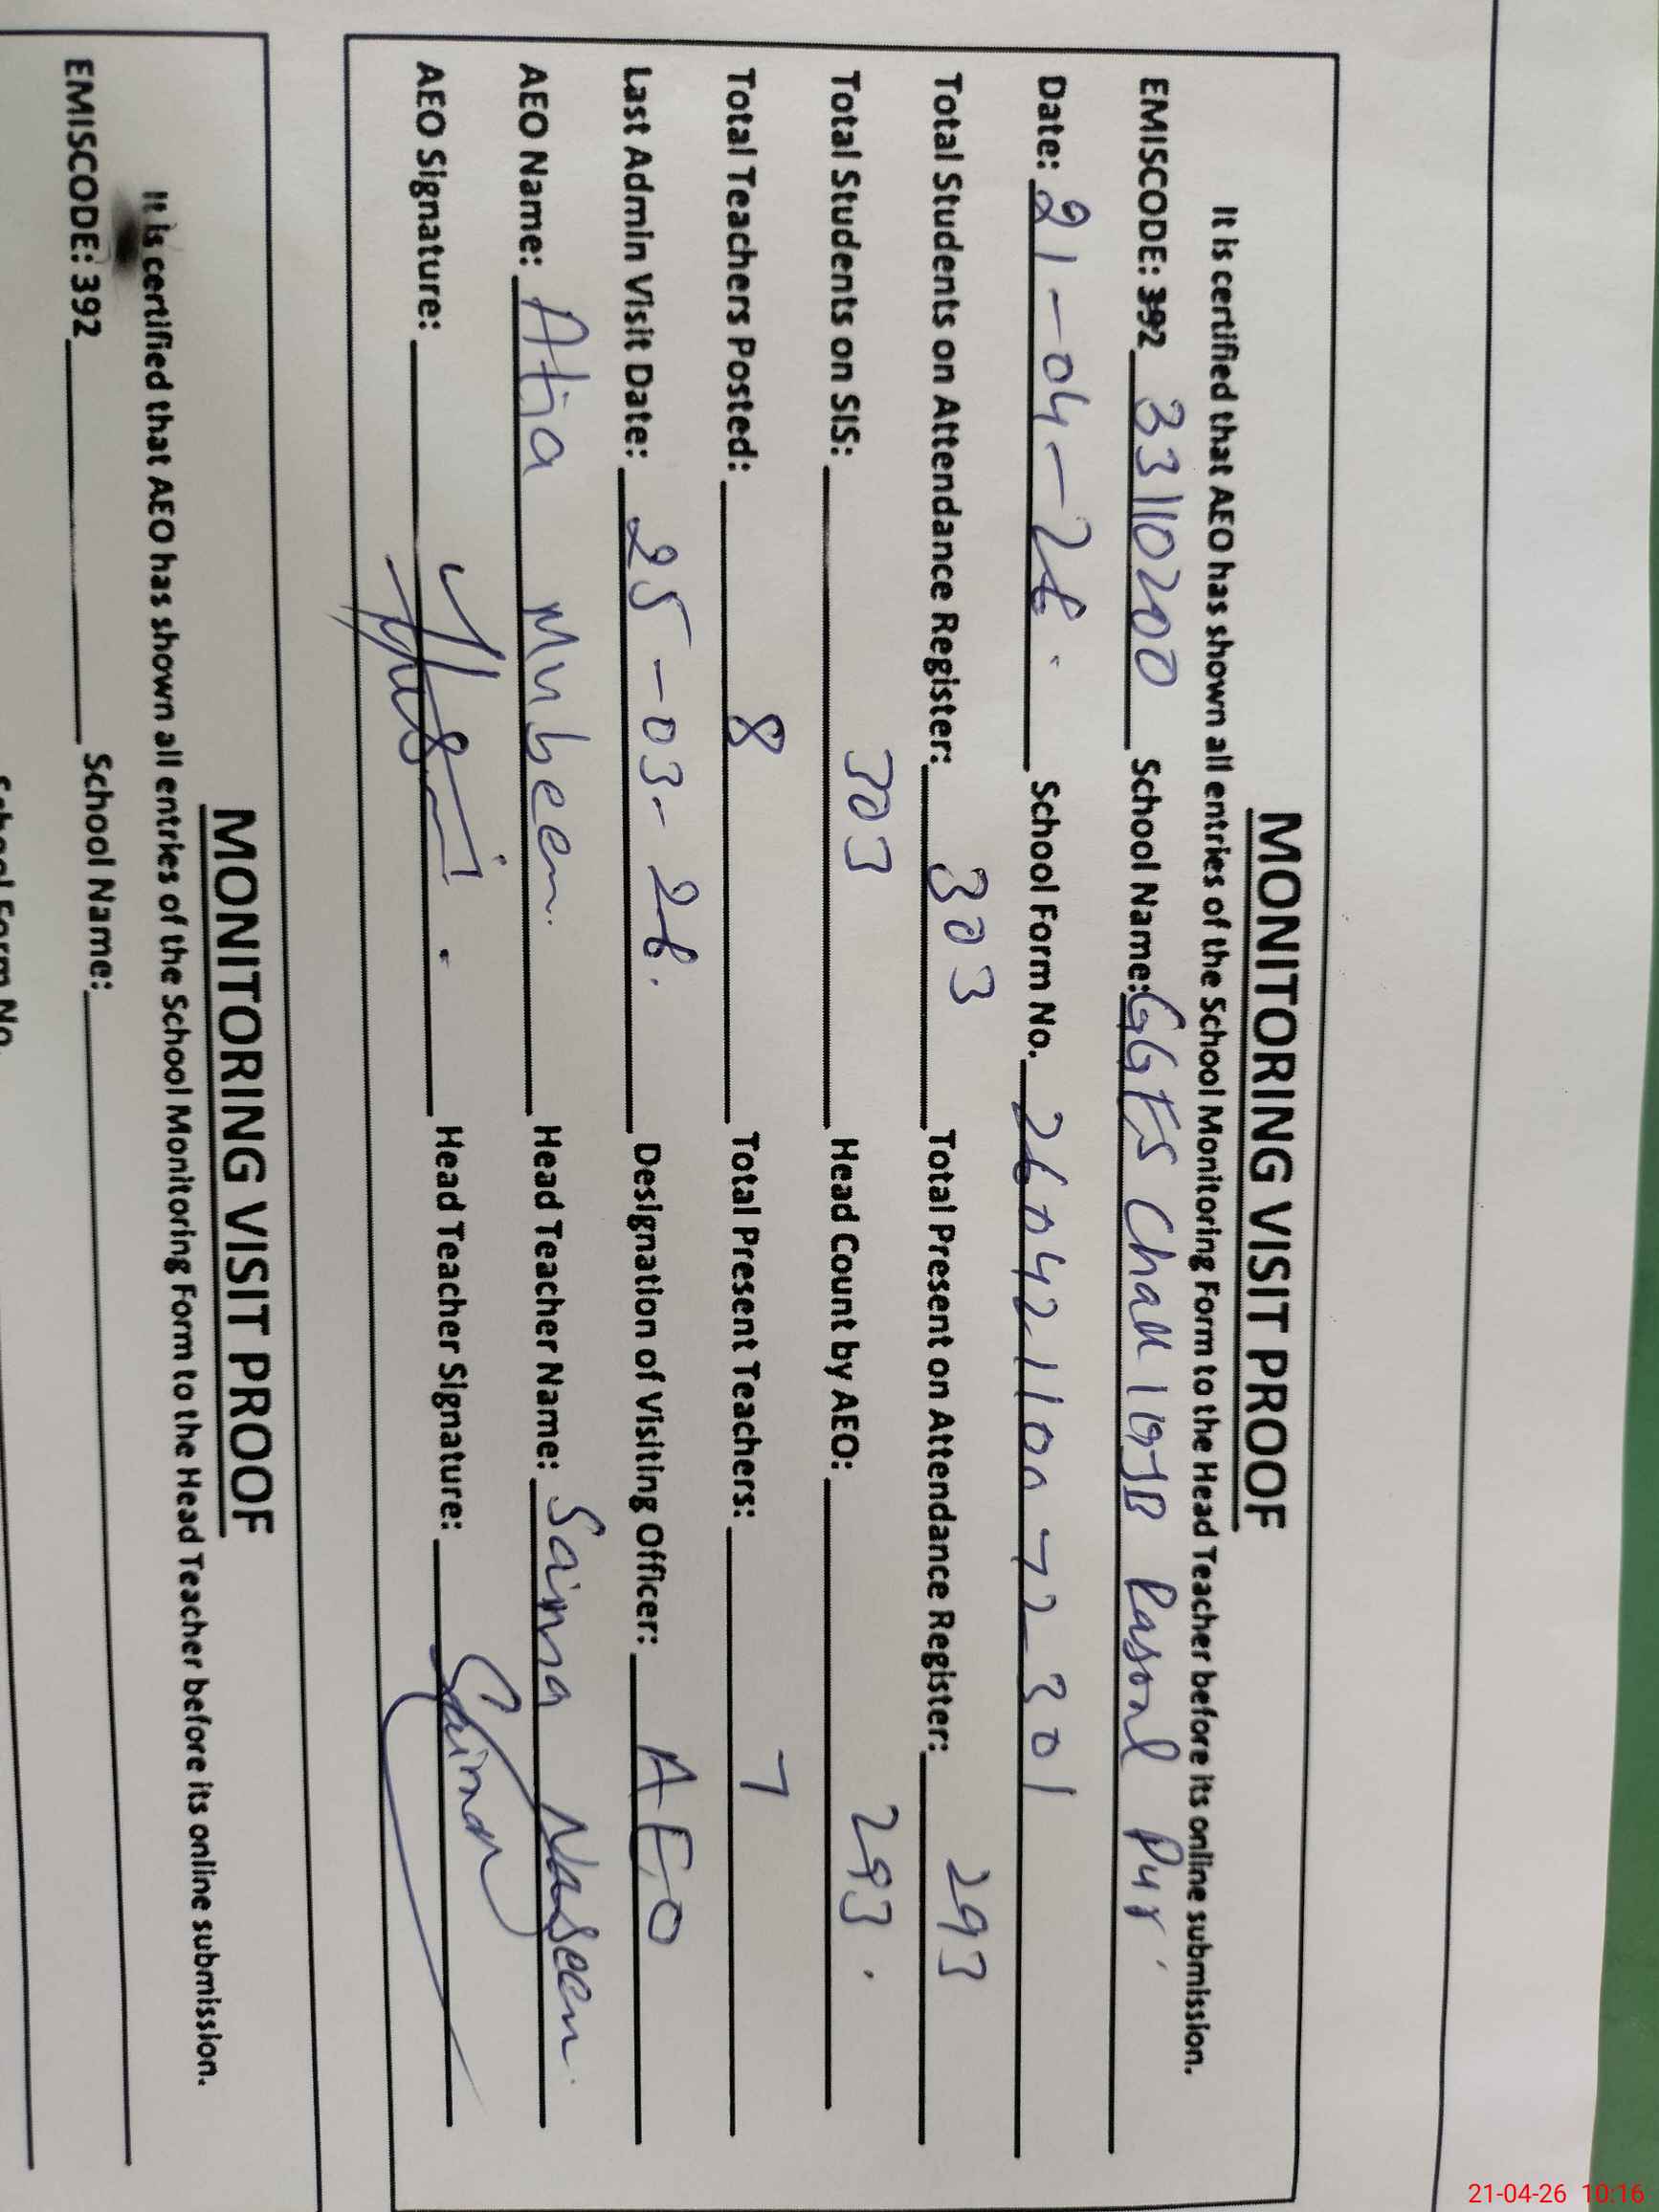 MONITORING VISIT PROOF
It is certified that AEO has shown all entries of the School Monitoring Form to the Head Teacher before its online submission.
EMISCODE: 392 33110200 School Name: GGES Chak 109JB Rasool Pur
Date: 21-04-26. School Form No. 260421100772301
Total Students on Attendance Register: 303 Total Present on Attendance Register: 293
Total Students on SIS: 303 Head Count by AEO: 293.
Total Teachers Posted: 8 Total Present Teachers: 7
Last Admin Visit Date: 25-03-26. Designation of Visiting Officer: AEO
AEO Name: Atia Mubeen. Head Teacher Name: Saima Naseem.
AEO Signature: Head Teacher Signature: Saima
MONITORING VISIT PROOF
It is certified that AEO has shown all entries of the School Monitoring Form to the Head Teacher before its online submission.
EMISCODE: 392 School Name:
School Form No.
21-04-26 10:16